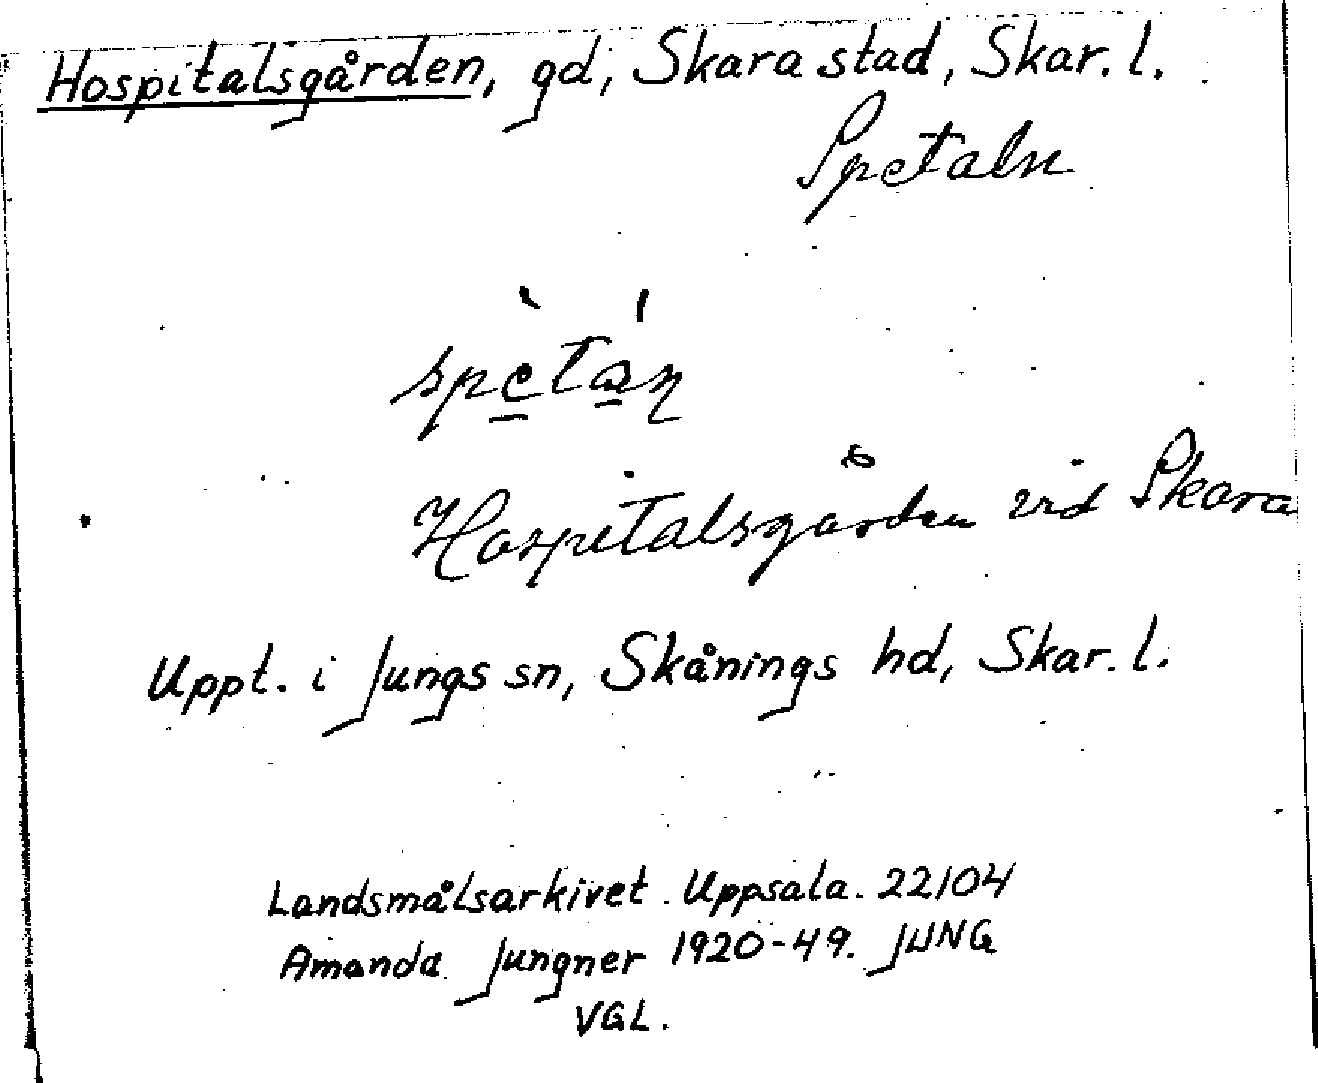 Hospitalsgården, gd, Skara stad, Skar. l.
Spetaln
spètáṇ
Hospitalsgården vid Skara
Uppt. i Jungs sn, Skånings hd, Skar. l.
Landsmålsarkivet. Uppsala. 22104
Amanda Jungner 1920-49. JUNG
VGL.